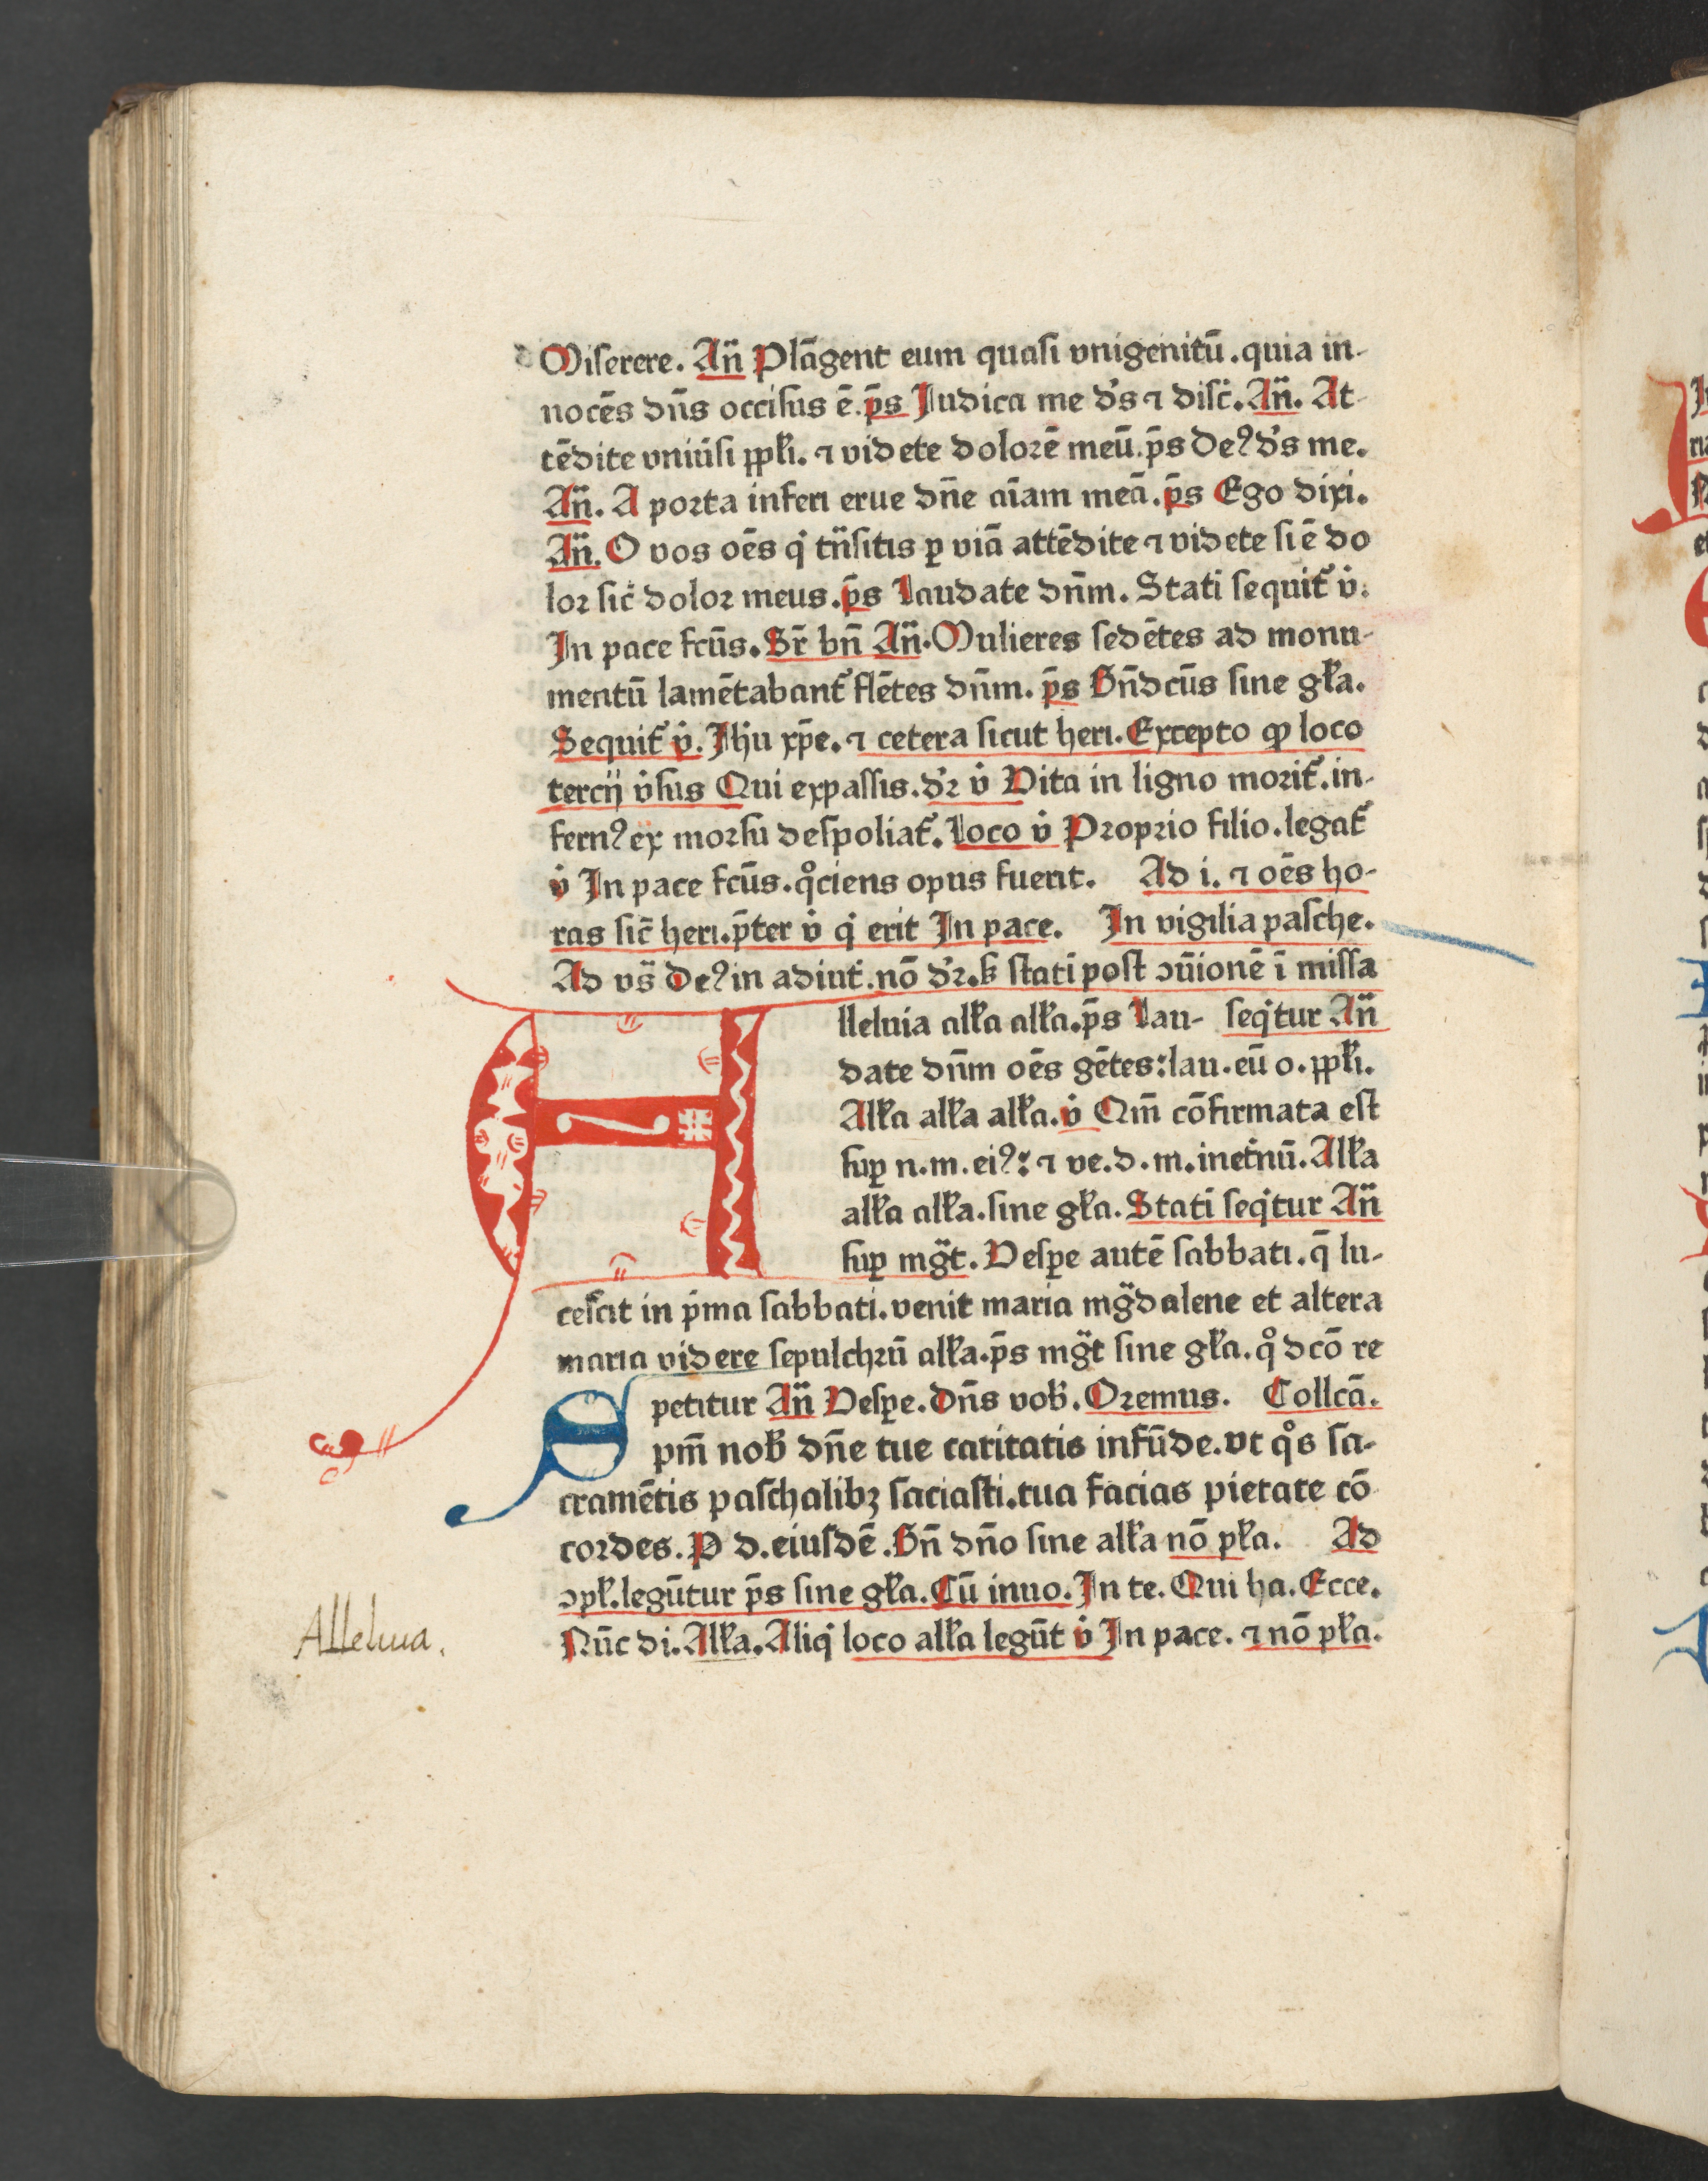 Miserere. An̄ Plāgent eum quasi vnigenitū. quia in-
nocēs dn̄s occisus ē. p̄s Iudica me d's ⁊ disc̄. An̄. At-
tēdite vniūsi ppl̄i. ⁊ videte dolorē meū. p̄s Deꝰ d's me.
An̄. A porta inferi erue dn̄e aīam meā. p̄s Ego dixi.
An̄. O vos oēs q' tn̄sitis ꝑ viā attēdite ⁊ videte si ē do
lor sic̄ dolor meus. p̄s Laudate dn̄m. Stati sequit' v̇.
In pace fcūs. Sr̄ bn̄ An̄. Mulieres sedētes ad monu-
mentū lamētabant' flētes dn̄m. p̄s Bn̄dcūs sine gl̄a.
Sequit' v̇. Ihu xp̄e. ⁊ cetera sicut heri. Excepto ꝙ loco
tercij v̇sus Qui expassis. d'r v̇ Vita in ligno morit'. in-
fernꝰ ex morsu despoliat'. Loco v̇ Proprio filio. legat'
v̇ In pace fcūs. q°ciens opus fuerit. Ad i. ⁊ oēs ho-
ras sic̄ heri. p̄ter v̇ q' erit In pace. In vigilia pasche.
Ad vs̄ Deꝰ in adiut'. nō d'r. s̄ stati post ↄūionē ī missa
Alleluia all'a all'a. p̄s Lau- seq'tur An̄
date dn̄m oēs gētes: lau. eū o. ppl̄i.
All'a all'a all'a. v̇ Qm̄ cōfirmata est
suꝑ n. m. eiꝰ: ⁊ ve. d. m. inet'nū. All'a
all'a all'a. sine gl̄a. Stati seq'tur An̄
suꝑ mg̈t. Vesꝑe autē sabbati. q̄ lu-
cescit in p'ma sabbati. venit maria mg̈dalene et altera
maria videre sepulchrū all'a. p̄s mg̈t sine gl̄a. q° dcō re
petitur An̄ Vesꝑe. Dn̄s vob'. Oremus. Collcā.
Spm̄ nob' dn̄e tue caritatis infūde. vt q°s sa-
cramētis paschalibꝫ saciasti. tua facias pietate cō
cordes. P d. eiusdē. Bn̄ dn̄o sine all'a nō pl̄a. Ad
ↄpl̄. legūtur p̄s sine gl̄a. Cū inuo. In te. Qui ha. Ecce.
Nūc di. All'a. Aliq' loco all'a legūt v̇ In pace. ⁊ nō pl̄a.
Alleluia.